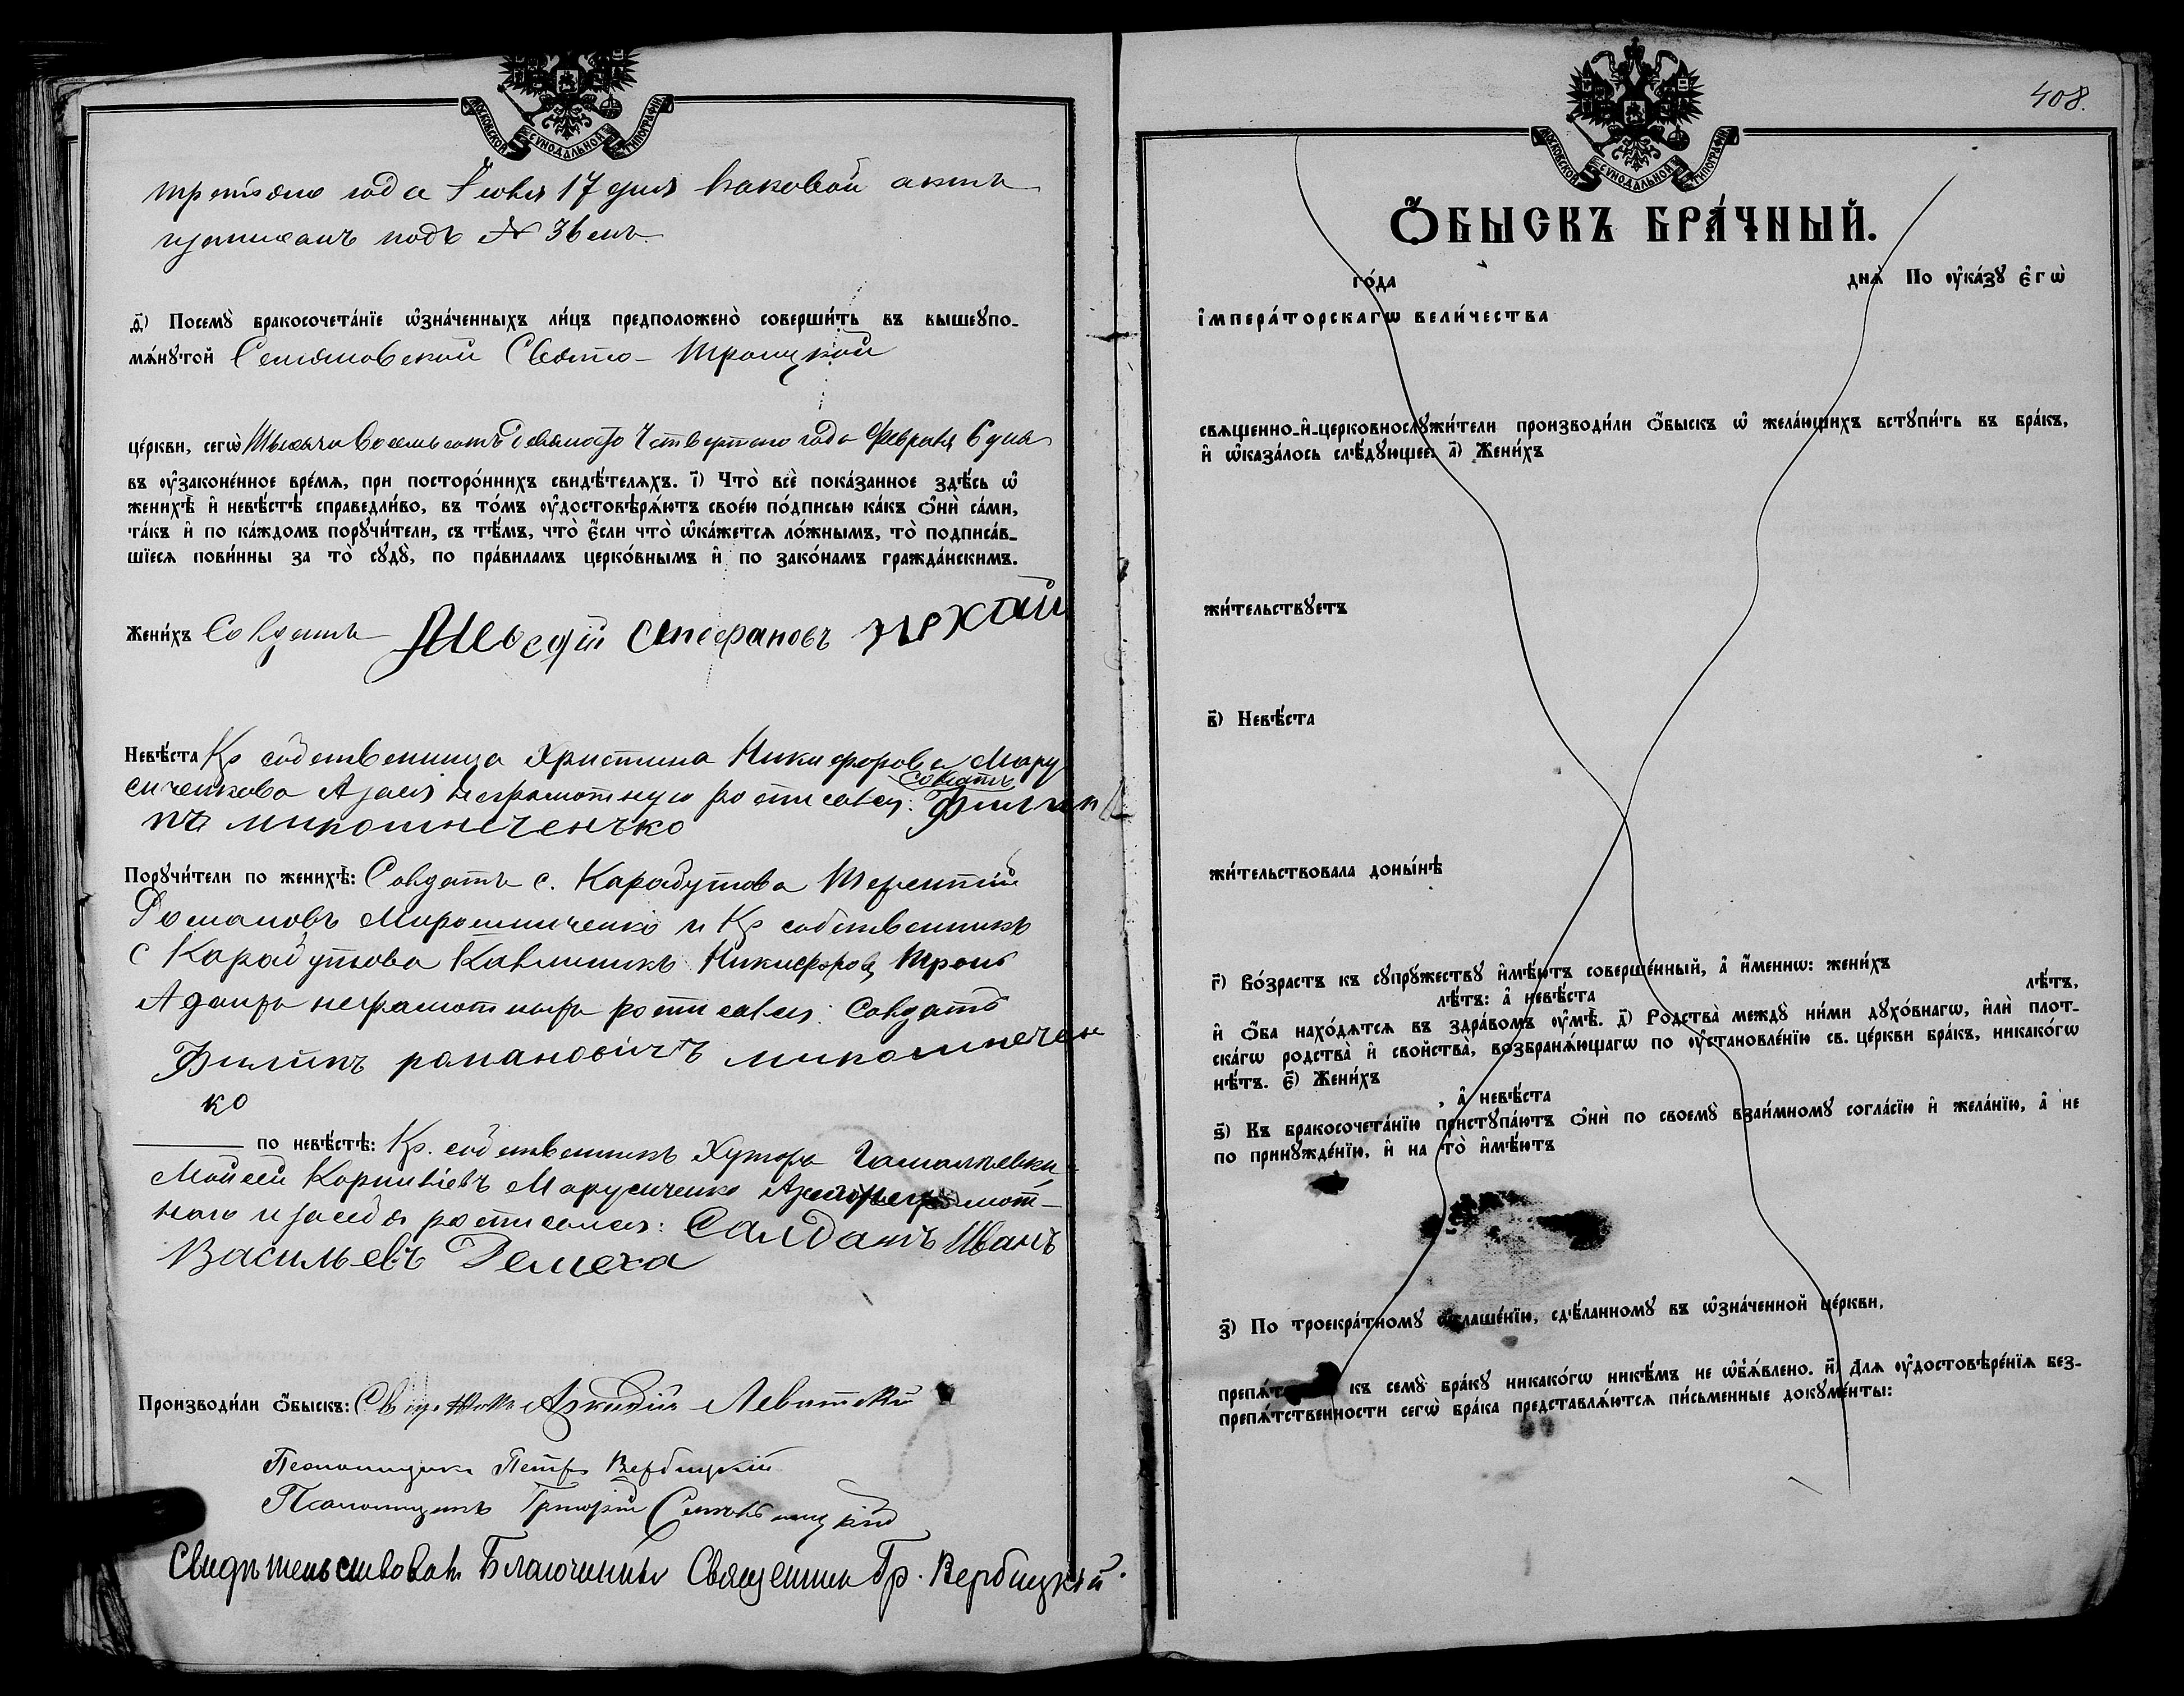 МОСКОВСКОЙ СѴНОДАЛЬНОЙ ТИПОГРАФІИ
года Іюня 17 дня каковой актъ
записанъ подъ № 36 мъ.
ѳ҃) Посемꙋ̀ бракосочета́нїе ѡ҆зна́ченныхъ ли́цъ предположено̀ соверши́ть въ вышеꙋпо-
мѧ́нꙋтой Свято-Троицкой
це́ркви, сегѡ̀ Тысяча Восемьсотъ девяносто Четвертаго года Февраля 6 дня
въ ᲂу҆законе́нное вре́мѧ, при посторо́ннихъ свидѣ́телѧхъ. і҃) Что̀ всѐ пока́занное здѣ́сь ѡ҆
женихѣ̀ и҆ невѣ́стѣ справедли́во, въ то́мъ ᲂу҆достовѣрѧ́ютъ свое́ю по́дписью ка́къ ѻ҆нѝ са́ми,
та́къ и҆ по ка́ждомъ порꙋчи́тели, съ тѣ́мъ, что̀ є҆́сли что̀ ѡ҆ка́жетсѧ ло́жнымъ, то̀ подписа́в-
шїесѧ пови́нны за то̀ сꙋдꙋ̀, по пра́виламъ церко́внымъ и҆ по зако́намъ гражда́нскимъ.
Жени́хъ Солдатъ Стефановъ
Невѣ́ста Кр собственница Христина Никифорова Мару
сиченкова А за неграмотную росписался: Солдатъ Филип
пъ мирошнеченько
Порꙋчи́тели по женихѣ̀: Солдатъ с. Карабутова Терентій
Романовъ Мирошниченко и Кр собственникъ
с Карабутова Калинникъ Никифоровъ
А за ихъ неграмотныхъ росписался: Солдатъ
Филипъ романовичъ мирошнечен
ко
по невѣ́стѣ: Кр. собственникъ Хутора
Мойсей Корниліевъ Марусиченко А за неграмот-
наго и за себя росписался: Салдатъ Иванъ
Васильевъ Ремеха
Производи́ли ѻ҆́быскъ: Священникъ Аркадій Левитскій
Псаломщикъ Петръ Вербицкій
Псаломщикъ Григорій
Свидѣтельствовалъ Благочинный Священникъ Гр. Вербицкій.
408.
МОСКОВСКОЙ СѴНОДАЛЬНОЙ ТИПОГРАФІИ
Ѻ҆БЫСКЪ БРА́ЧНЫЙ.
го́да днѧ̀ По ᲂу҆ка́зꙋ є҆гѡ̀
і҆мпера́торскагѡ вели́чества
свѧщенно-и҆-церковнослꙋжи́тели производи́ли ѻ҆́быскъ ѡ҆ жела́ющихъ встꙋпи́ть въ бра́къ,
и҆ ѡ҆каза́лось слѣ́дꙋющее: а҃) Жени́хъ
жи́тельствꙋетъ
в҃) Невѣ́ста
жи́тельствовала доны́нѣ
г҃) Во́зрастъ къ сꙋпрꙋ́жествꙋ и҆мѣ́ютъ соверше́нный, а҆ и҆́меннѡ: жени́хъ
лѣ́тъ: а҆ невѣ́ста лѣ́тъ,
и҆ ѻ҆́ба нахо́дѧтсѧ въ здра́вомъ ᲂу҆мѣ̀. д҃) Родства̀ междꙋ̀ ни́ми дꙋхо́внагѡ, и҆лѝ плот-
ска́гѡ родства̀ и҆ свойства̀, возбранѧ́ющагѡ по ᲂу҆становле́нїю св. це́ркви бра́къ, никако́гѡ
нѣ́тъ. є҃) Жени́хъ
, а҆ невѣ́ста
ѕ҃) Къ бракосочета́нїю пристꙋпа́ютъ ѻ҆нѝ по своемꙋ̀ взаи́мномꙋ согла́сїю и҆ жела́нїю, а҆ не
по принꙋжде́нїю, и҆ на то̀ и҆мѣ́ютъ
з҃) По троекра́тномꙋ ѡ҆глаше́нїю, сдѣ́ланномꙋ въ ѡ҆зна́ченной це́ркви,
препѧ́т къ семꙋ̀ бра́кꙋ никако́гѡ никѣ́мъ не ѡ҆б̾ѧ́влено. и҃) Длѧ ᲂу҆достовѣре́нїѧ без-
препѧ́тственности сегѡ̀ бра́ка представлѧ́ютсѧ пи́сьменные докꙋме́нты: